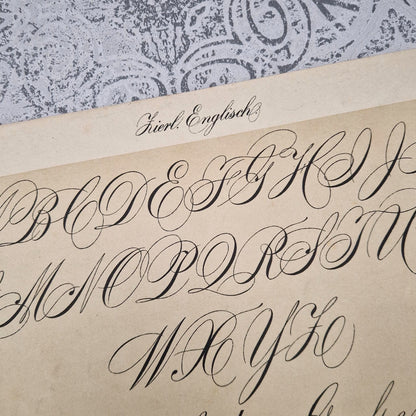 Zierl. Englisch.
B C D E F G H I J
M N O P Q R S T U
W X Y Z